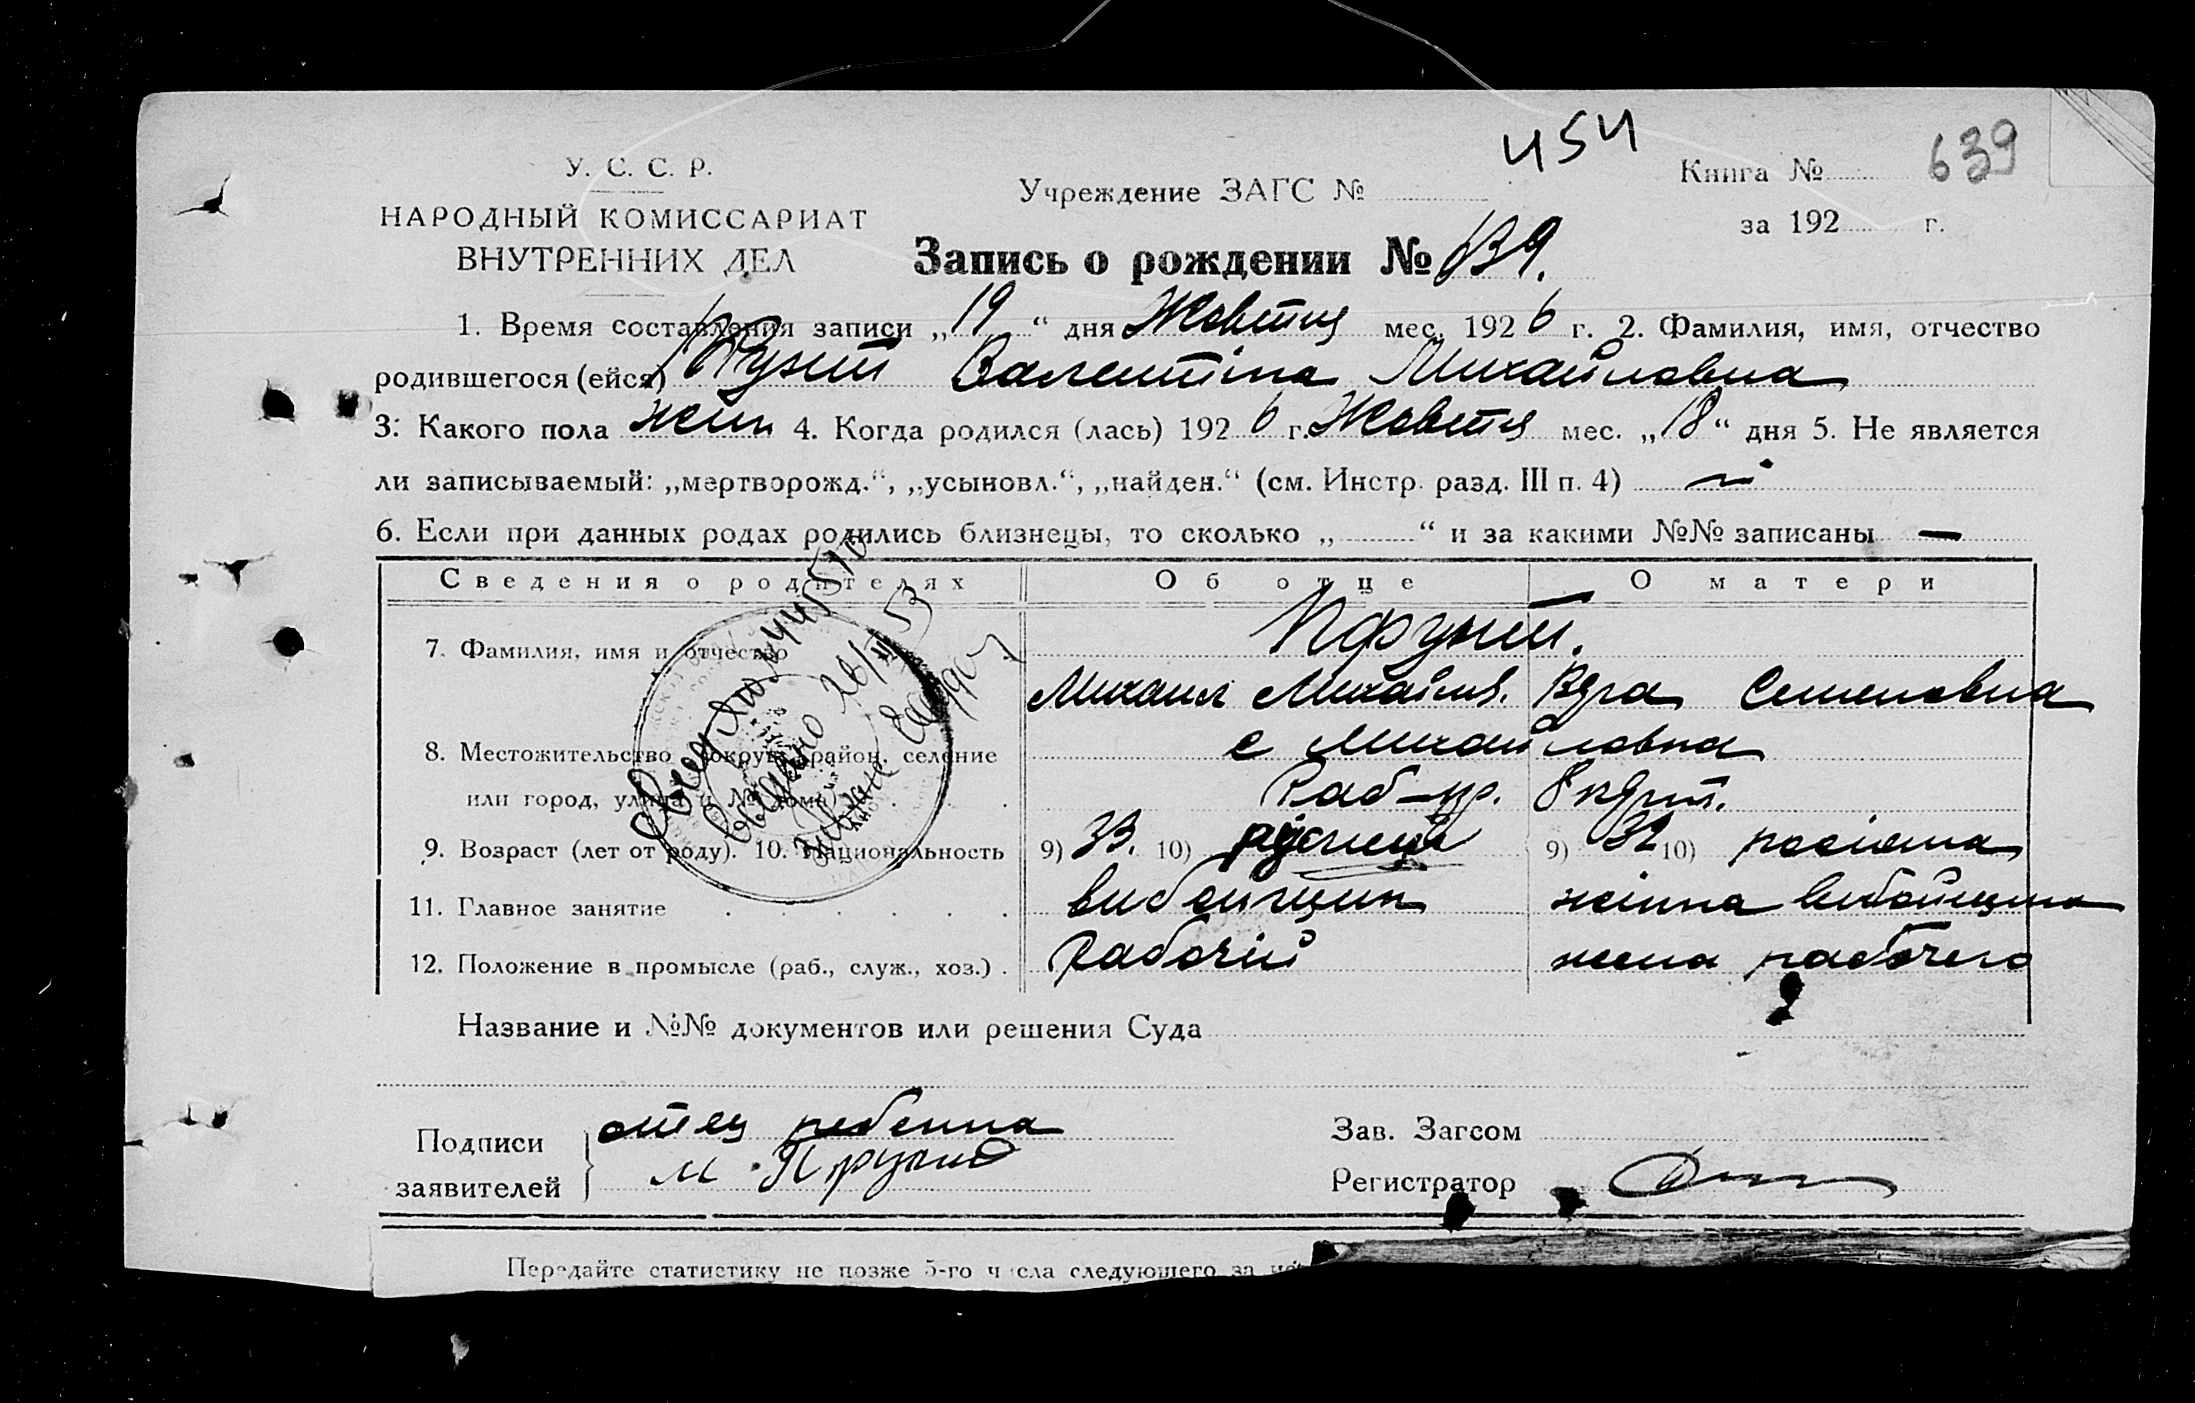 454
639
У. С. С. Р.
НАРОДНЫЙ КОМИССАРИАТ
ВНУТРЕННИХ ДЕЛ
Учреждение ЗАГС №
Книга №
за 192 г.
Запись о рождении № 639.
1. Время составления записи „19“ дня Жовтня мес. 1926 г. 2. Фамилия, имя, отчество
родившегося (ейся) Валентіна Михайловна
3. Какого пола жін 4. Когда родился (лась) 1926 г. Жовтня мес. „18“ дня 5. Не является
ли записываемый: „мертворожд.“, „усыновл.“, „найден.“ (см. Инстр. разд. III п. 4) ні
6. Если при данных родах родились близнецы, то сколько „ “ и за какими №№ записаны —
Сведения о родителях Об отце О матери
7. Фамилия, имя и отчество
Михаил Михайл. Вера Семеновна
8. Местожительство (округ, район, селение с Михайловка
или город, улица и № дома)
9. Возраст (лет от роду). 10. Национальность 9) 33. 10) 9) 32 10)
11. Главное занятие вибойщик жінка вибойщика
12. Положение в промысле (раб., служ., хоз.) Рабочій жена рабочего
Название и №№ документов или решения Суда
Подписи заявителей
отец ребенка
М.
Зав. Загсом
Регистратор
Передайте статистику не позже 5-го числа следующего за